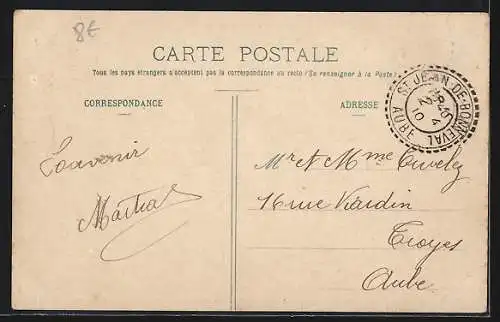 8€
CARTE POSTALE
Tous les pays étrangers n'acceptent pas la correspondance au recto (Se renseigner à la Poste)
CORRESPONDANCE
ADRESSE
ST JEAN-DE-BONNEVAL
AUBE
4
10
Souvenir
Mr et Mme
16 rue
Troyes
Aube